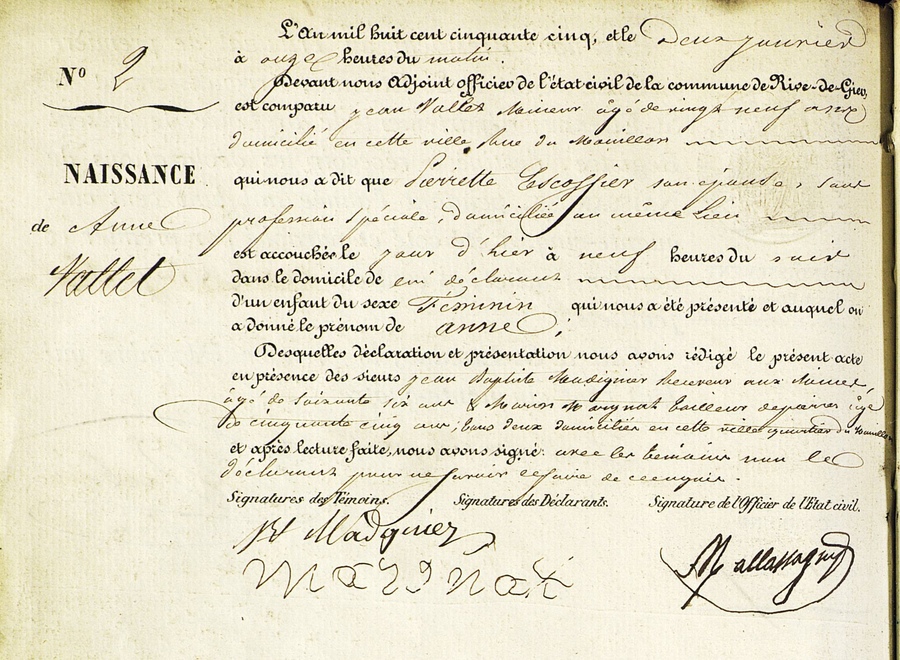 L'An mil huit cent cinquante cinq, et le Deux janvier
à onze heures du matin.
Nº 2
Devant nous Adjoint officier de l'état civil de la commune de Rive-de-Gier,
est comparu jean Vallet Mineur âgé de vingt neuf ans
domicilié en cette ville Rue du Mouillon
NAISSANCE
qui nous a dit que Pierrette Escoffier son épouse, sans
de Anne
profession spéciale, domiciliée au même lieu
Vallet
est accouchée le jour d'hier à neuf heures du soir
dans le domicile de lui déclarant
d'un enfant du sexe Féminin qui nous a été présenté et auquel on
a donné le prénom de anne ;
Desquelles déclaration et présentation nous avons rédigé le présent acte
en présence des sieurs jean Baptiste Madignier Receveur aux Mines,
âgé de soixante six ans & Marignat tailleur de pierres âgé
de cinquante cinq ans ; tous deux domiciliés en cette ville quartier du Mouillon
et après lecture faite, nous avons signé avec les témoins non le
déclarant pour ne savoir le faire de ce enquis.
Signatures des Témoins. Signatures des Déclarants. Signature de l'Officier de l'Etat civil.
Bt Madignier
Marignat